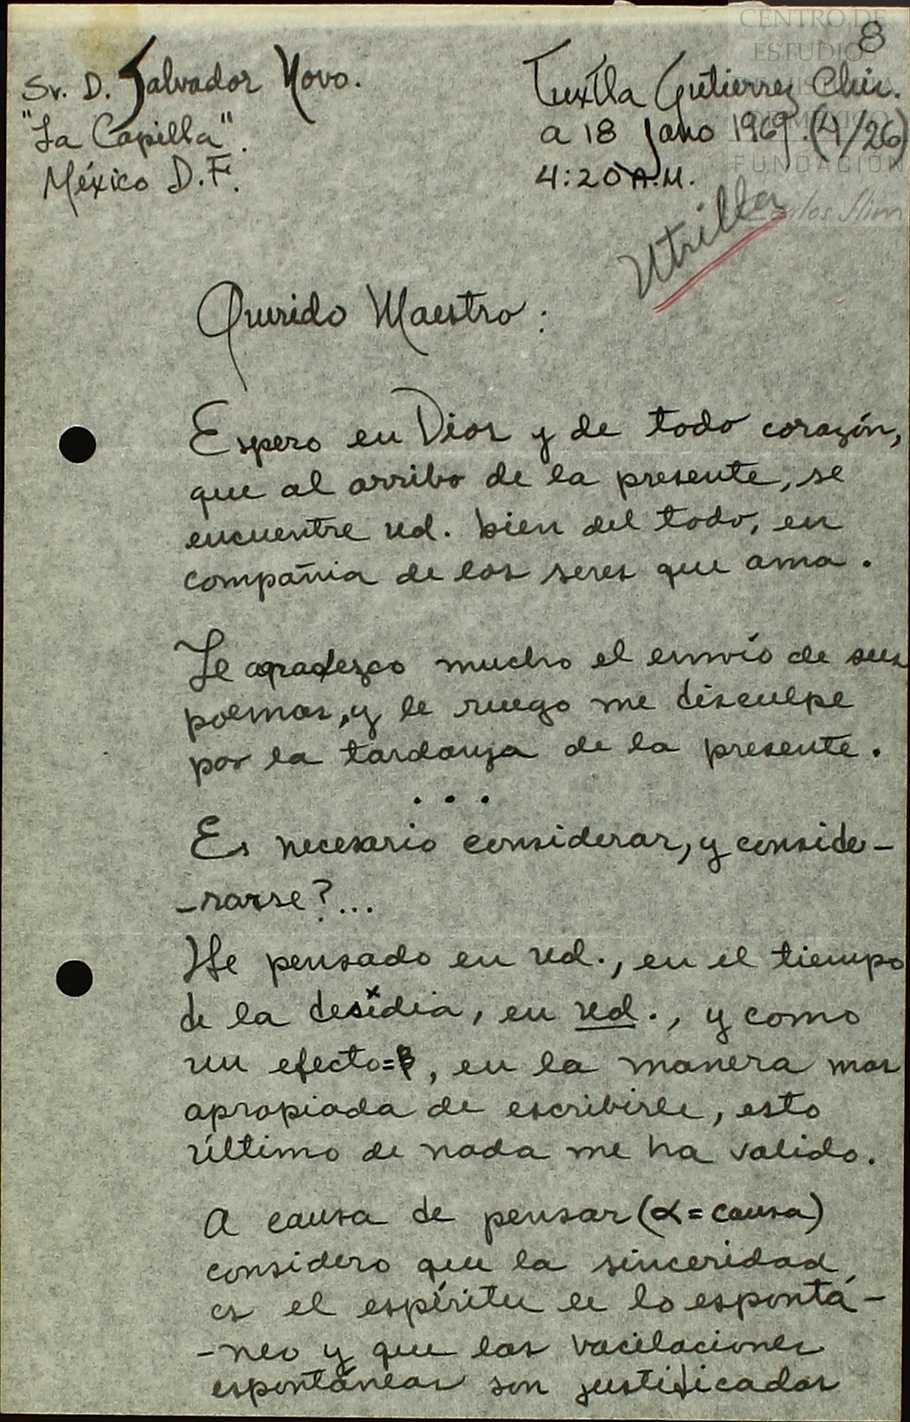 8
CENTRO DE
ESTUDIOS
FUNDACIÓN
Carlos Slim
Sr. D. Salvador Novo.
"La Capilla".
México D.F.
Tuxtla Gutierrez Chis.
a 18 1969. (4/26)
4:20 A.M.
Utrilla
Querido Maestro:
Espero en Dios y de todo corazón,
que al arribo de la presente, se
encuentre ud. bien del todo, en
compañia de los seres que ama.
Le agradezco mucho el envió de sus
poemas, y le ruego me disculpe
por la tardanza de la presente.
. . .
Es necesario considerar, y conside-
-rarse?...
He pensado en ud., en el tiempo
de la desidia, en ud., y como
un efecto=β, en la manera mas
apropiada de escribirle, esto
último de nada me ha valido.
A causa de pensar (α = causa)
considero que la sinceridad
es el espíritu de lo espontá-
-neo y que las vacilaciones
espontáneas son justificadas